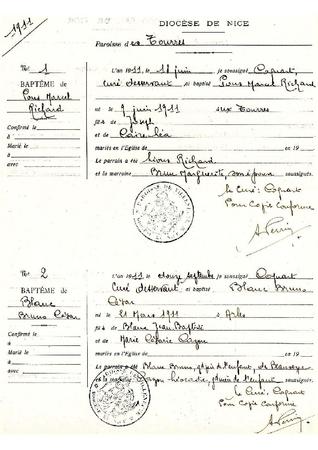 1911
DIOCÈSE DE NICE
Paroisse d es Tourres
N° 1
BAPTÊME de
Pons Marcel
Richard
Confirmé le
à
Marié le
à
avec
L'an 1911, le 11 juin je soussigné Coquart
curé desservant ai baptisé Pons Marcel Richard
né le juin 1911 aux Tourres
fil s de Joseph
et de Caire Léa
mariés en l'Eglise de en 19
Le parrain a été Richard
et la marraine Brun Marguerite, soussignés.
le Curé: Coquart
Pour Copie Conforme
A. Perrin
N° 2
BAPTÊME de
Blanc
Bruno César
Confirmé le
à
Marié le
à
avec
L'an 1911, le douze septembre je soussigné Coquart
Curé Desservant ai baptisé Blanc Bruno
César
né le 21 Mars 1911 à
fil s de Blanc Jean Baptiste
et de Marie
mariés en l'Eglise de en 19
Le parrain a été Blanc Bruno, de l'enfant, de
et la marraine de l'enfant soussignés.
le Curé: Coquart
Pour Copie Conforme
A. Perrin